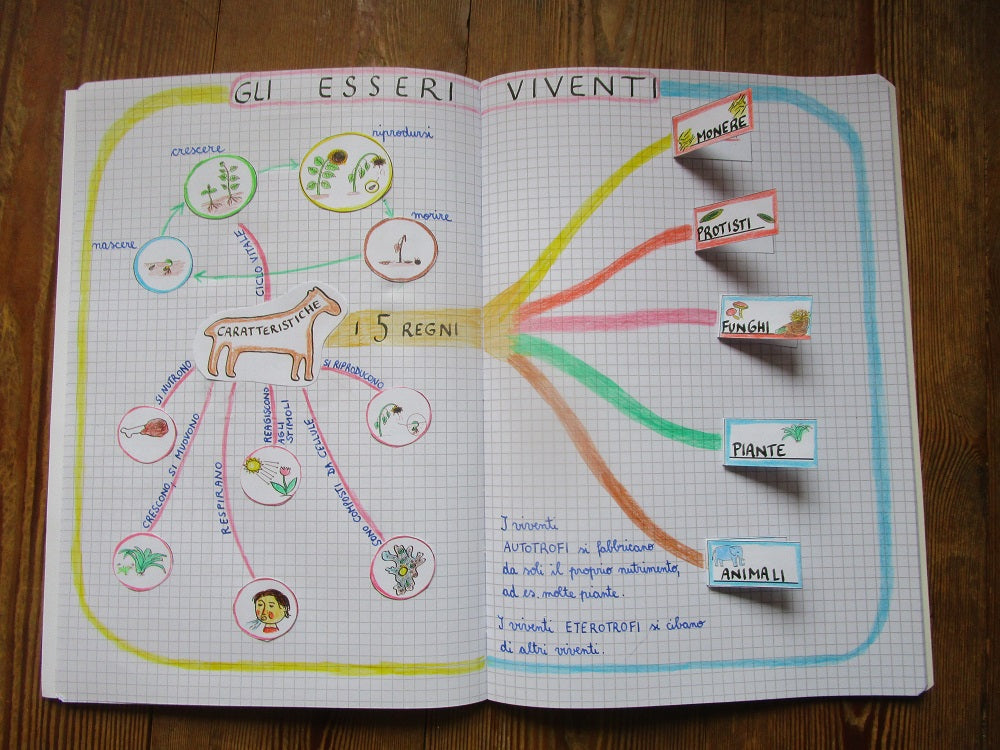 GLI ESSERI VIVENTI
crescere
riprodursi
nascere
morire
CICLO VITALE
CARATTERISTICHE
SI NUTRONO
CRESCONO, SI MUOVONO
RESPIRANO
REAGISCONO
AGLI
STIMOLI
SONO COMPOSTI DA CELLULE
SI RIPRODUCONO
I 5 REGNI
MONERE
PROTISTI
FUNGHI
PIANTE
ANIMALI
I viventi
AUTOTROFI si fabbricano
da soli il proprio nutrimento,
ad es. molte piante.
I viventi ETEROTROFI si cibano
di altri viventi.